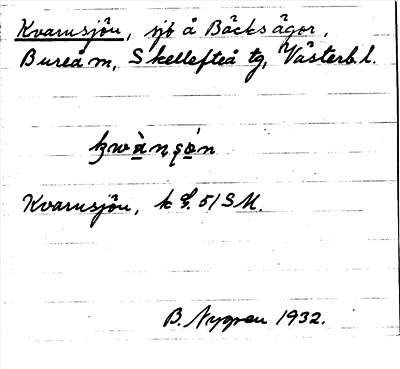 Kvarnsjön, sjö å Bäcksågor,
Bureå m, Skellefteå tg, Västerb. l.
Kvarnsjön, k 51 SM.
B. Nygren 1932.